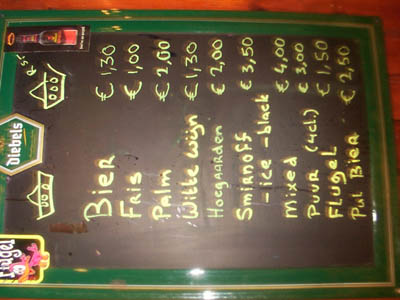 Diebels
Flügel
Bier € 1,30
Fris € 1,00
Palm € 2,00
Witte wijn € 1,30
Hoegaarden € 2,00
Smirnoff € 3,50
- ice - black
Mixed € 4,00
Puur (4cl.) € 3,00
Flugel € 1,50
Pul Bier € 2,50